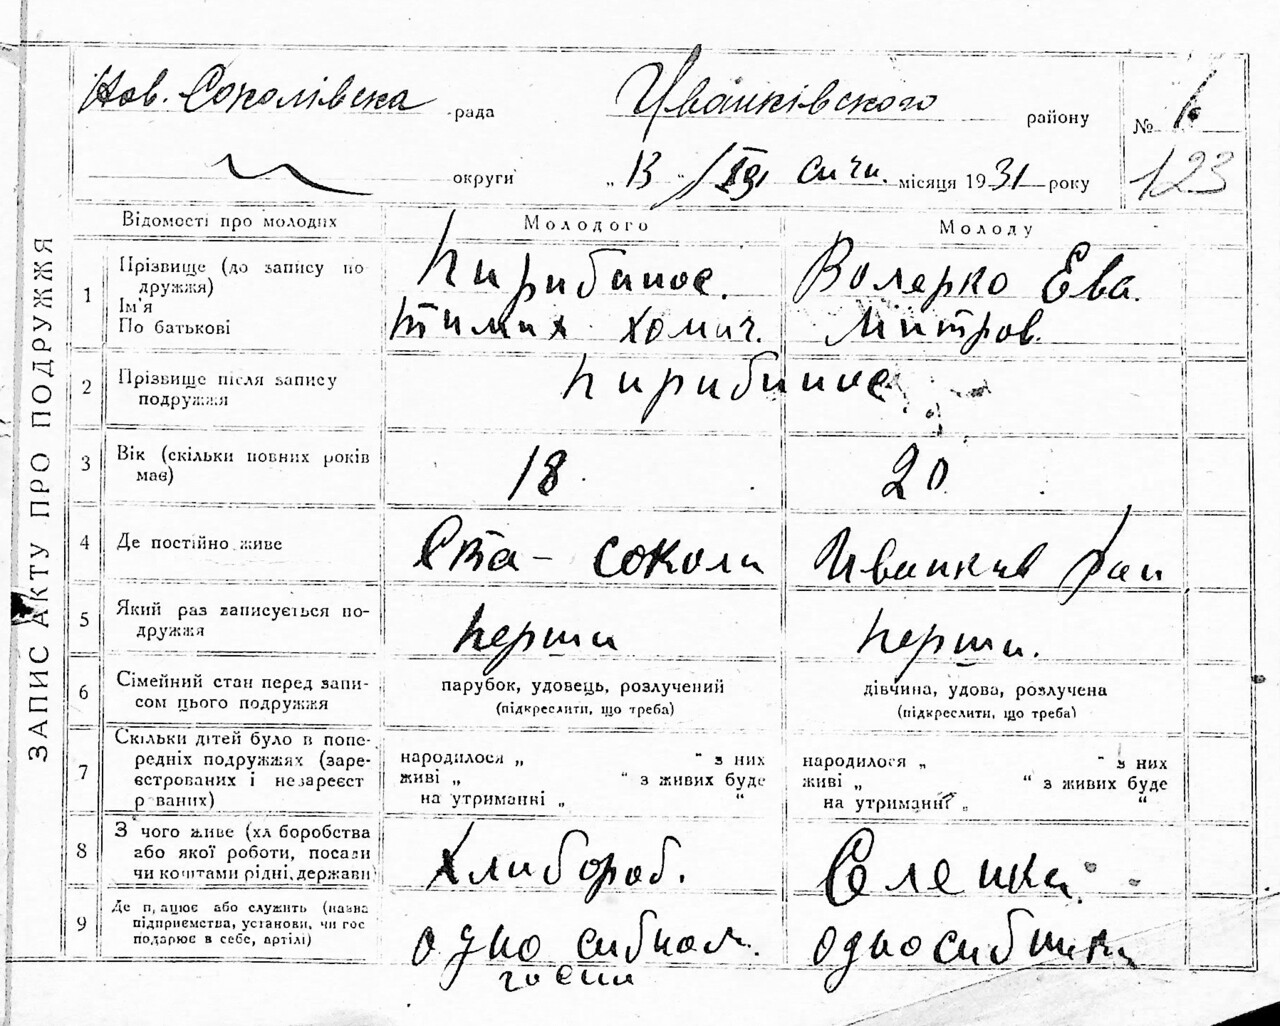 ЗАПИС АКТУ ПРО ПОДРУЖЖЯ
Нов. Соколівска рада Іванківского району № 1.
округи „13“ січн. місяця 1931 року 123
Відомості про молодих Молодого Молоду
1 Прізвище (до запису по
дружжя)
Ім'я
По батькові
Пирибинос. Волерко Ева.
Тимих Хомич. Митров.
2 Прізвище після запису
подружжя
Пирибинос
3 Вік (скільки повних років
має)
18. 20
4 Де постійно живе
Ста-соколи Иванкив Раи
5 Який раз записується по-
дружжя
перши перши.
6 Сімейний стан перед запи-
сом цього подружжя
парубок, удовець, розлучений
(підкреслити, що треба)
дівчина, удова, розлучена
(підкреслити, що треба)
7 Скільки дітей було в попе-
редніх подружжях (заре-
єстрованих і незареєст
р ваних)
народилося „ “ з них
живі „ “ з живих буде
на утриманні „ “
народилося „ “ з них
живі „ “ з живих буде
на утриманні „ “
8 З чого живе (хл боробства
або якої роботи, посади
чи коштами рідні, держави)
Хлибороб. Селешка.
9 Де п ацює або служить (назва
підприємства, установи, чи гос
подарює в себе, артілі)
одно сибном.